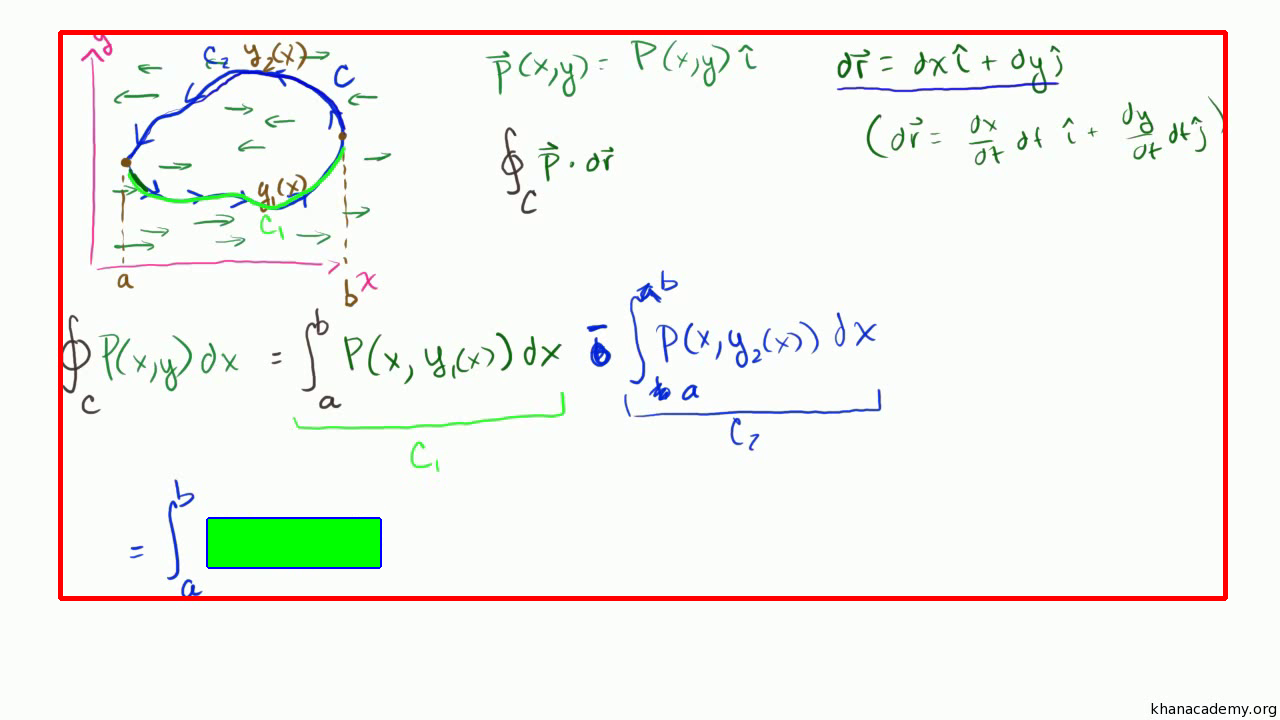 y
C₂ y₂(x) C
y₁(x)
C₁
a b x
P⃗(x,y) = P(x,y) î
dr⃗ = dx î + dy ĵ
(dr⃗ = dx/dt dt î + dy/dt dt ĵ)
∮_C P⃗ · dr⃗
∮_C P(x,y) dx = ∫_a^b P(x, y₁(x)) dx - ∫_a^b P(x, y₂(x)) dx
C₁ C₂
= ∫_a^b
khanacademy.org